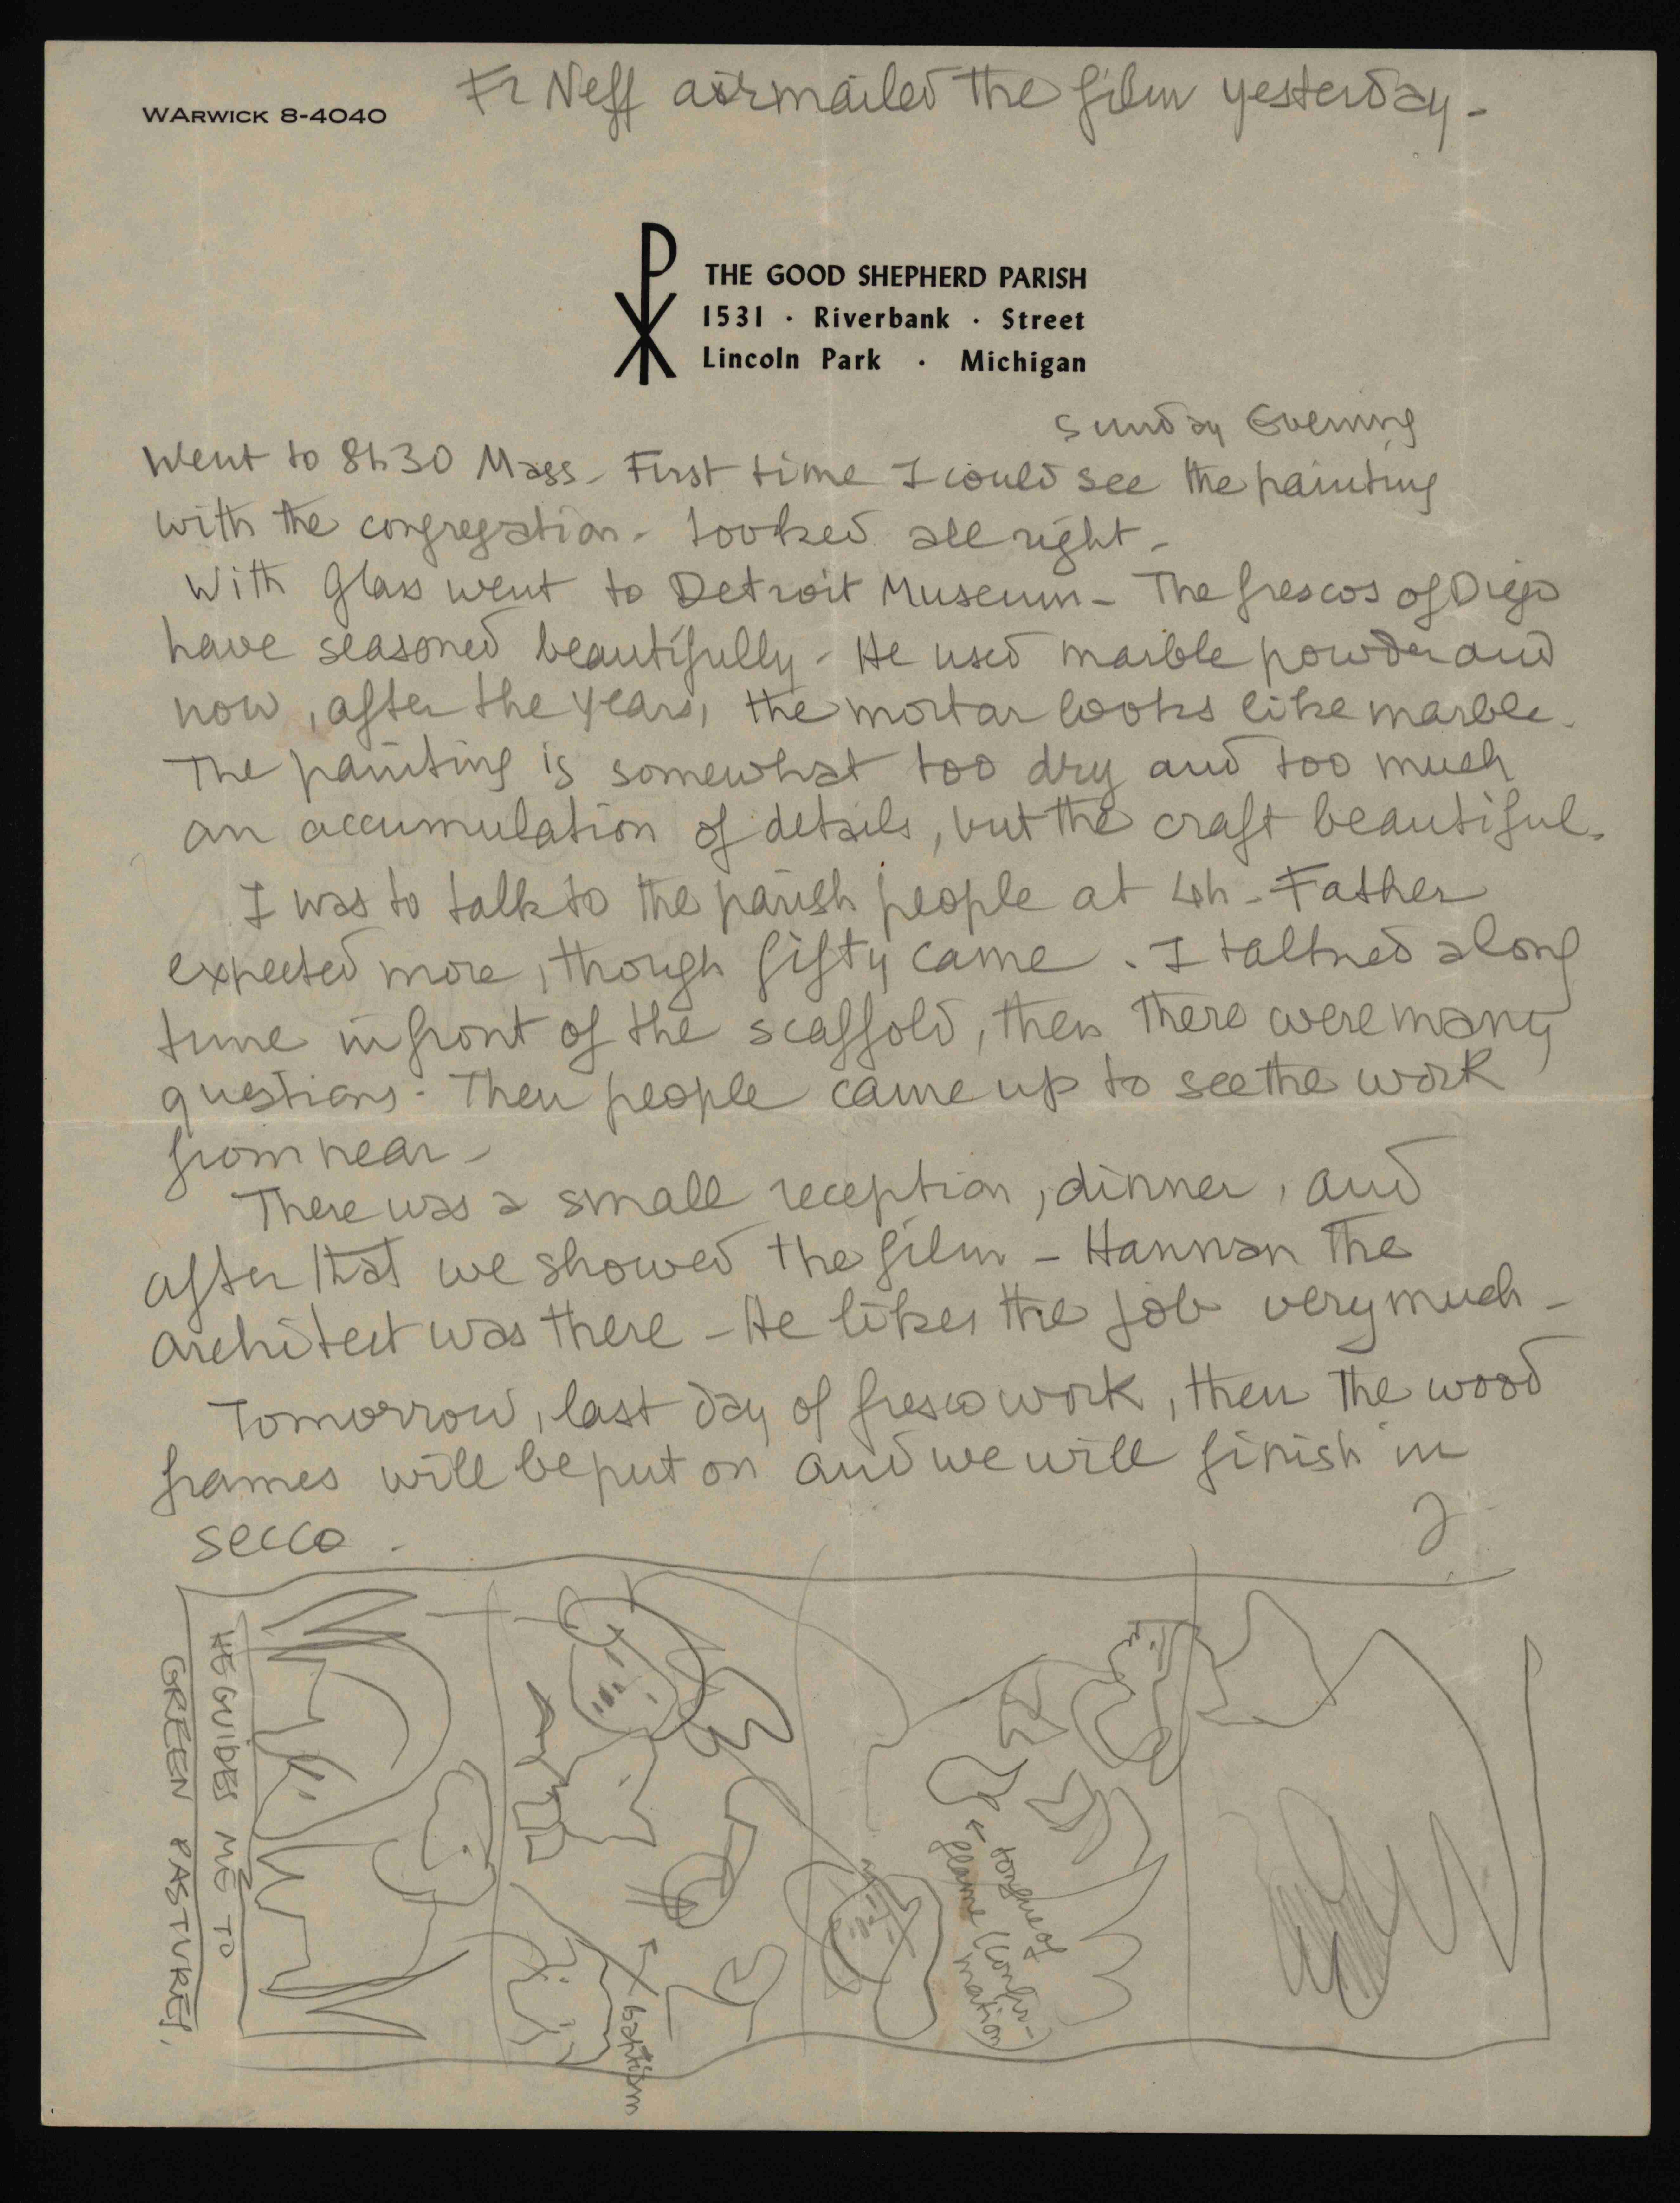 Fr Neff airmailed the film yesterday -
WARWICK 8-4040
THE GOOD SHEPHERD PARISH
1531 · Riverbank · Street
Lincoln Park · Michigan
Sunday Evening
Went to 8h30 Mass - First time I could see the painting
with the congregation - Looked all right -
With Glass went to Detroit Museum - The frescos of Diego
have seasoned beautifully - He used marble powder and
now, after the years, the mortar looks like marble.
The painting is somewhat too dry and too much
an accumulation of details, but the craft beautiful.
I was to talk to the parish people at 4h - Father
expected more, though fifty came. I talked along
time in front of the scaffold, then there were many
questions - Then people came up to see the work
from near -
There was a small reception, dinner, and
after that we showed the film - Hannan the
architect was there - He likes the job very much -
Tomorrow, last day of fresco work, then the wood
frames will be put on and we will finish in
secco.
J
HE GUIDES ME TO
GREEN PASTURES,
baptism
tongue of
flame (Confir-
mation)